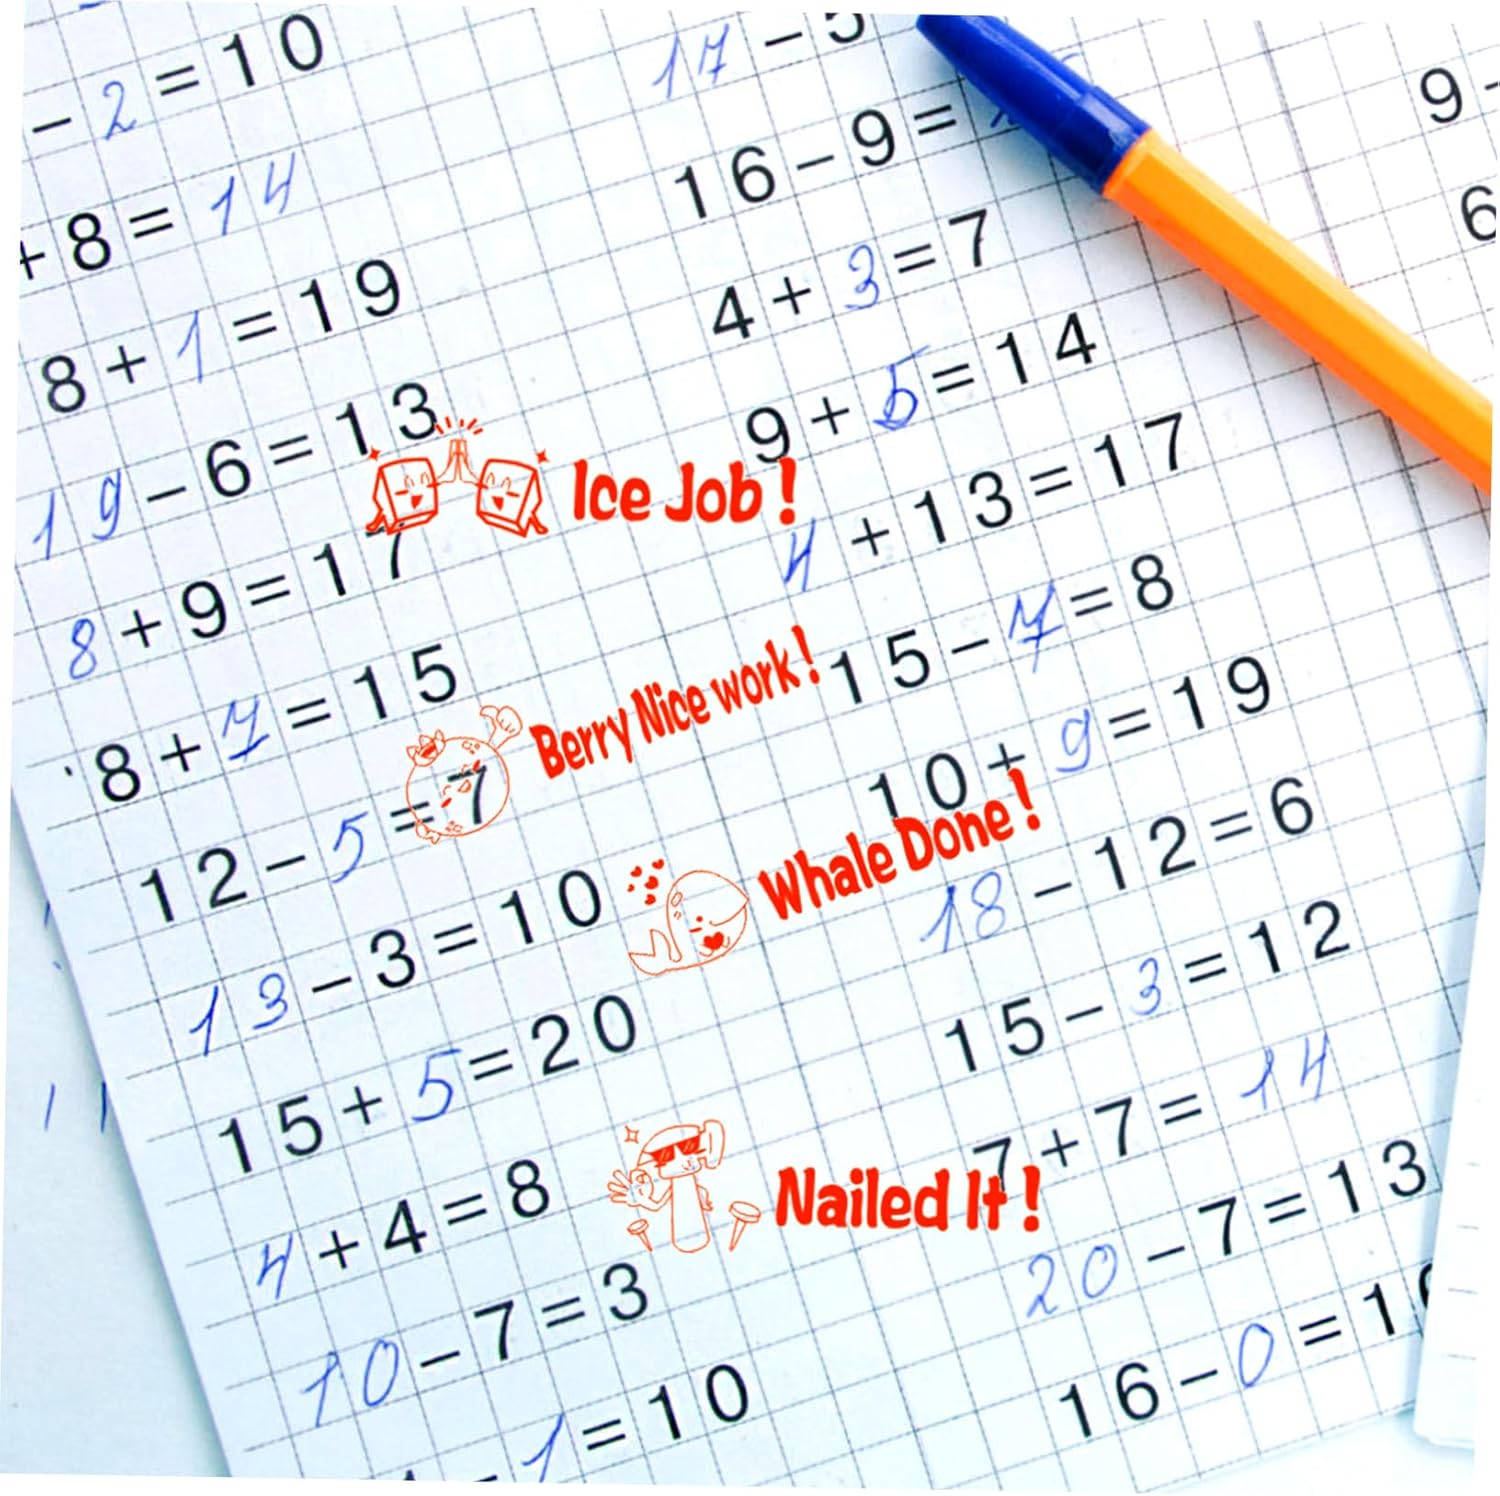 - 2 = 10
+ 8 = 14
8 + 1 = 19
19 - 6 = 13
8 + 9 = 17
8 + 7 = 15
12 - 5 = 7
13 - 3 = 10
15 + 5 = 20
4 + 4 = 8
10 - 7 = 3
- 1 = 10
Ice Job!
Berry Nice work!
Whale Done!
Nailed It!
17 - 5
16 - 9 =
4 + 3 = 7
9 + 5 = 14
4 + 13 = 17
15 - 7 = 8
10 + 9 = 19
18 - 12 = 6
15 - 3 = 12
7 + 7 = 14
20 - 7 = 13
16 - 0 = 16
9 -
6